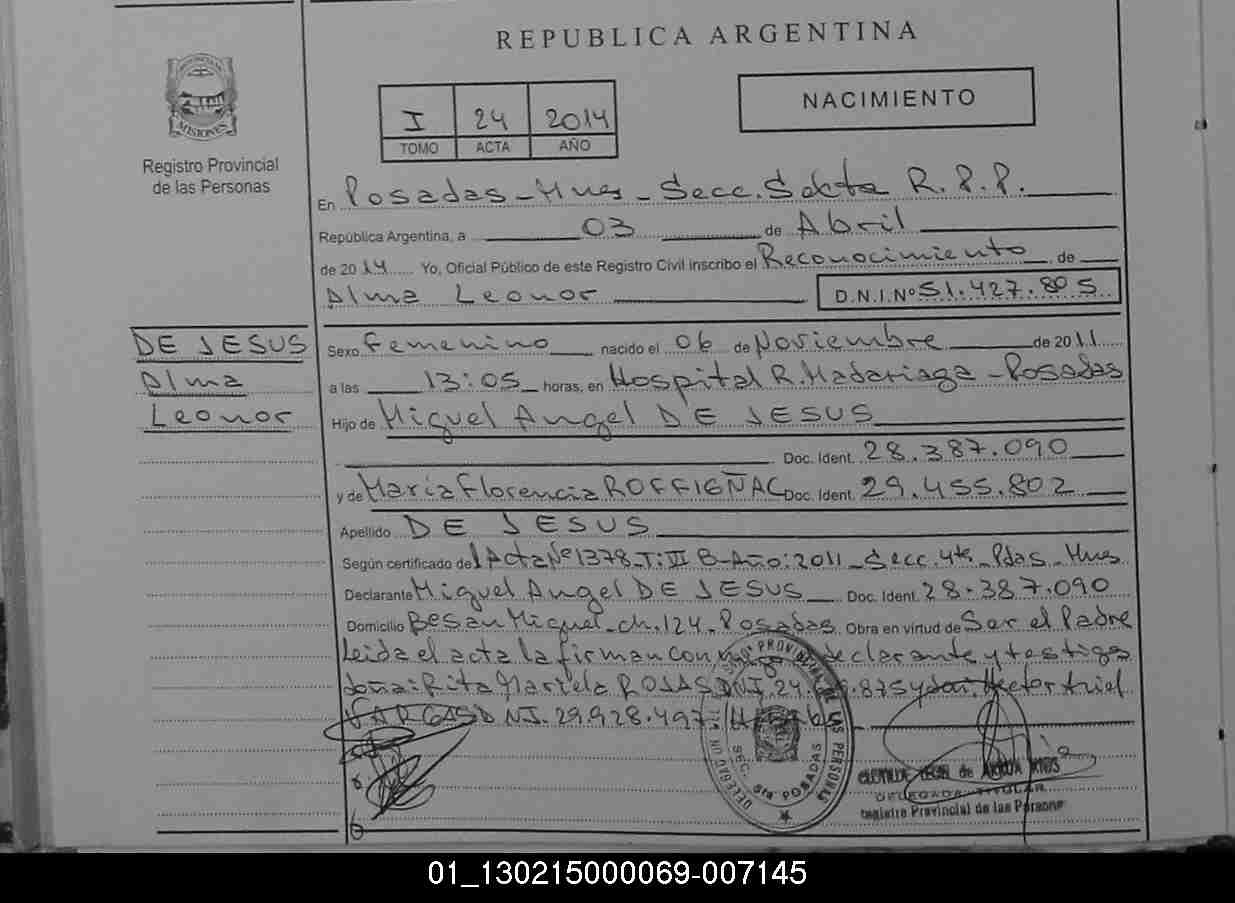 REPUBLICA ARGENTINA
MISIONES
Registro Provincial
de las Personas
I 24 2014
TOMO ACTA AÑO
NACIMIENTO
En Posadas - Mnes - Secc. Sexta R.P.P.
República Argentina, a 03 de Abril
de 2014 Yo, Oficial Público de este Registro Civil inscribo el Reconocimiento de
Alma Leonor D.N.I.Nº 51.427.805
DE JESUS
Alma
Leonor
Sexo Femenino nacido el 06 de Noviembre de 2011
a las 13:05 horas, en Hospital R. Madariaga - Posadas
Hijo de Miguel Angel DE JESUS
Doc. Ident. 28.387.090
y de María Florencia ROFFIGÑAC Doc. Ident. 29.455.802
Apellido DE JESUS
Según certificado del Acta Nº 1378 - T: III B - Año: 2011 - Secc. 4ta - Pdas - Mnes
Declarante Miguel Angel DE JESUS Doc. Ident. 28.387.090
Domicilio Bº San Miguel - ch. 124 - Posadas. Obra en virtud de Ser el Padre
Leida el acta la firman con declarante y testigos
doña: Rita Mariela ROJAS DNI. 24. .875 y don: Hector Ariel
VARGAS DNI. 29.928.497:
PROVINCIAL DE LAS PERSONAS
SEC. 6ta POSADAS
DELEGADA TITULAR
Registro Provincial de las Personas
01_130215000069-007145